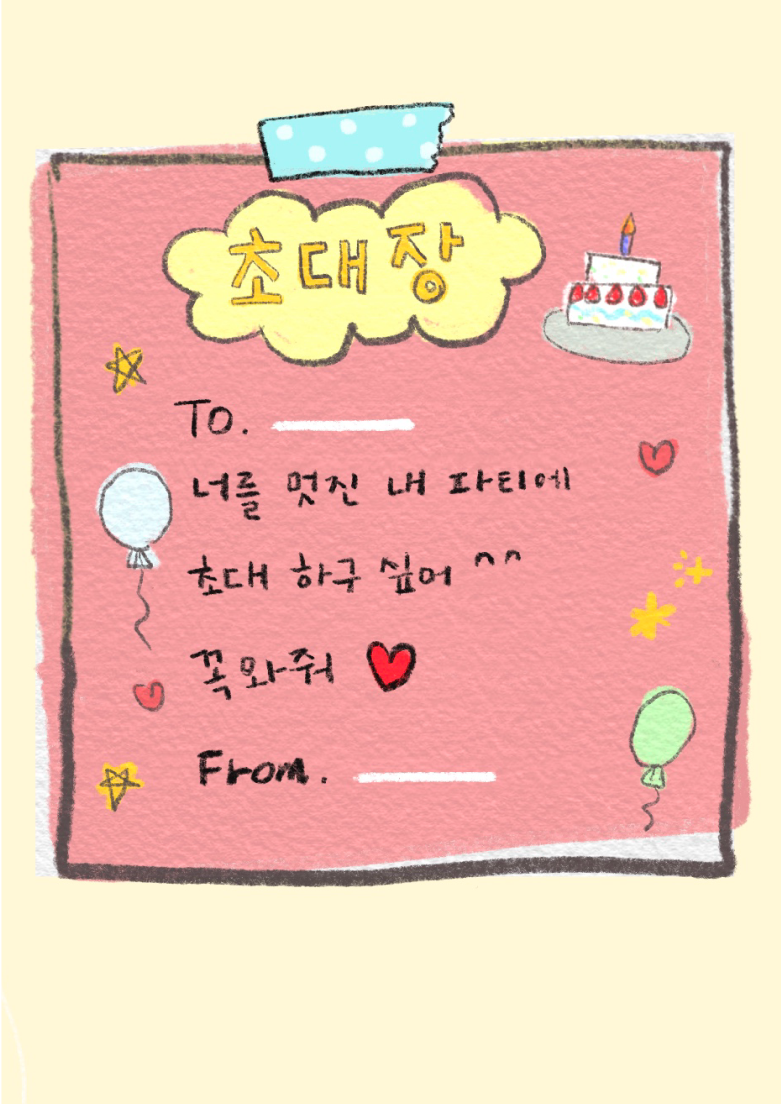 초대장
To.
너를 멋진 내 파티에
초대 하구 싶어 ^^
꼭와줘 ♥
From.